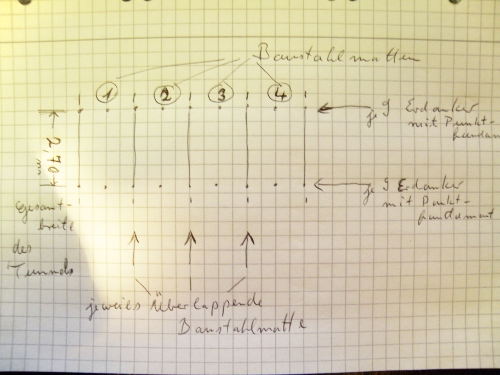 Baustahlmatten
1 2 3 4
je 9 Erdanker
mit Punkt-
fundam
2,70 m
je 9 Erdanker
mit Punkt-
fundament
Gesamt-
breite
des
Tunnels
jeweils überlappende
Baustahlmatte